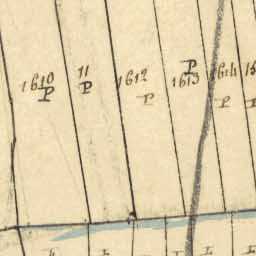 1610 P
11 P
1612 P
P 1613
1614 P
15